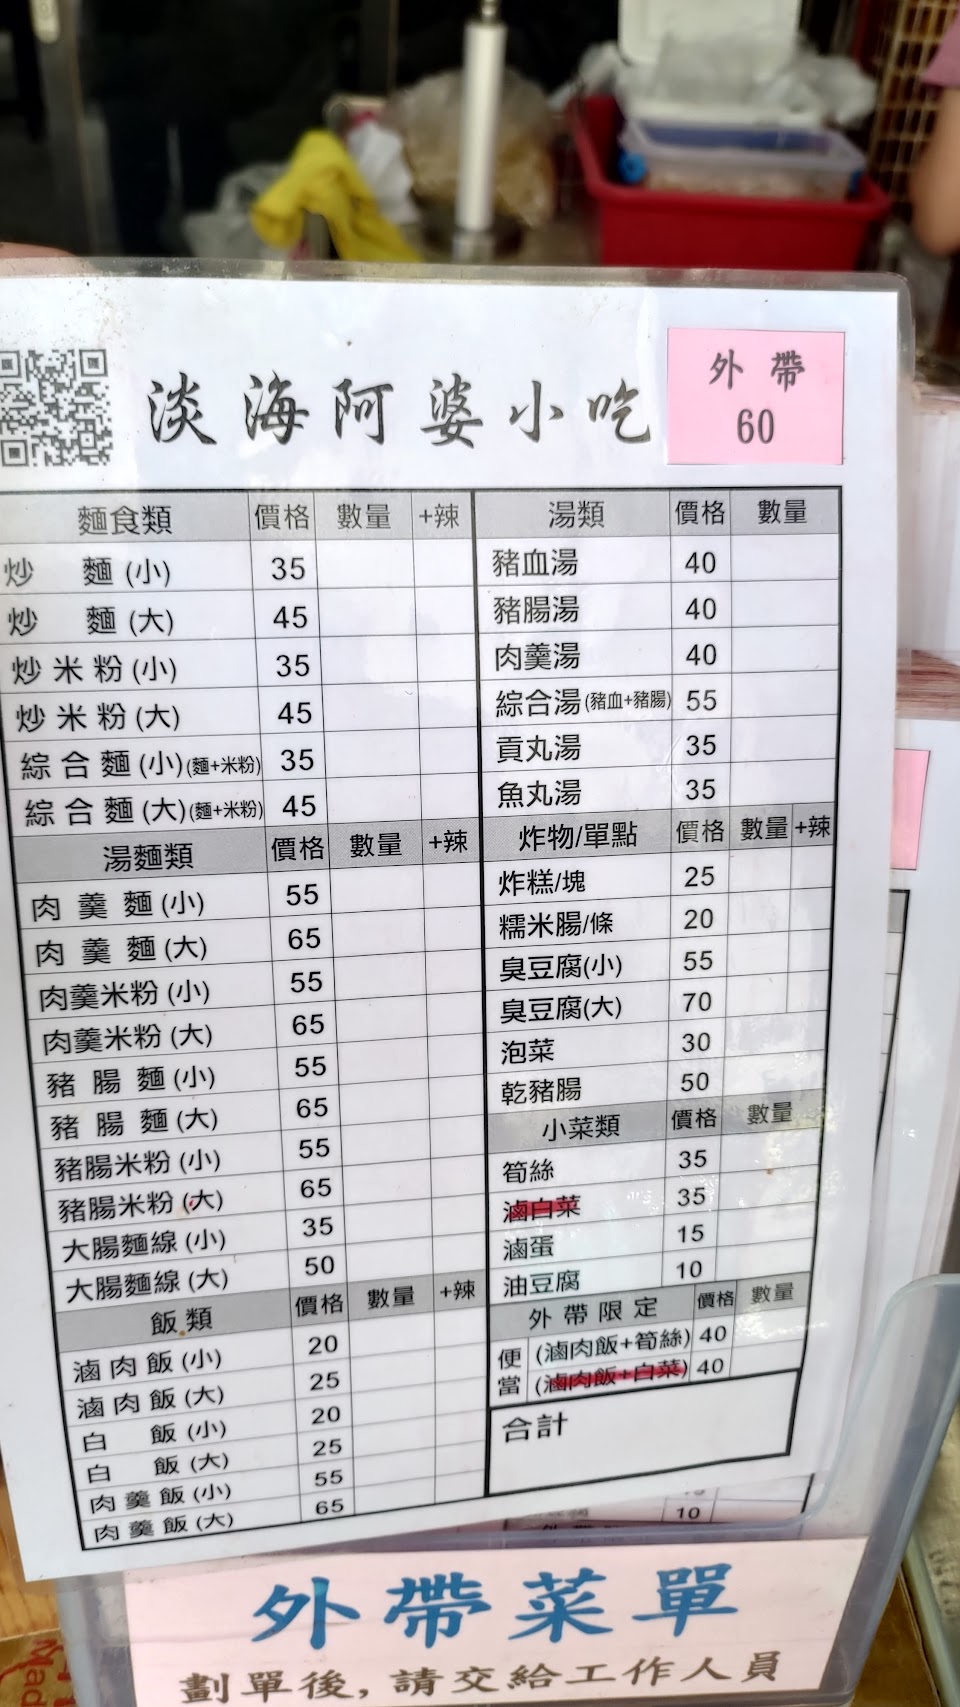 淡海阿婆小吃
外帶
60
麵食類 價格 數量 +辣
炒麵(小) 35
炒麵(大) 45
炒米粉(小) 35
炒米粉(大) 45
綜合麵(小)(麵+米粉) 35
綜合麵(大)(麵+米粉) 45
湯麵類 價格 數量 +辣
肉羹麵(小) 55
肉羹麵(大) 65
肉羹米粉(小) 55
肉羹米粉(大) 65
豬腸麵(小) 55
豬腸麵(大) 65
豬腸米粉(小) 55
豬腸米粉(大) 65
大腸麵線(小) 35
大腸麵線(大) 50
飯類 價格 數量 +辣
滷肉飯(小) 20
滷肉飯(大) 25
白飯(小) 20
白飯(大) 25
肉羹飯(小) 55
肉羹飯(大) 65
湯類 價格 數量
豬血湯 40
豬腸湯 40
肉羹湯 40
綜合湯(豬血+豬腸) 55
貢丸湯 35
魚丸湯 35
炸物/單點 價格 數量 +辣
炸糕/塊 25
糯米腸/條 20
臭豆腐(小) 55
臭豆腐(大) 70
泡菜 30
乾豬腸 50
小菜類 價格 數量
筍絲 35
滷白菜 35
滷蛋 15
油豆腐 10
外帶限定 價格 數量
便當 (滷肉飯+筍絲) 40
(滷肉飯+白菜) 40
合計
10
外帶菜單
劃單後,請交給工作人員